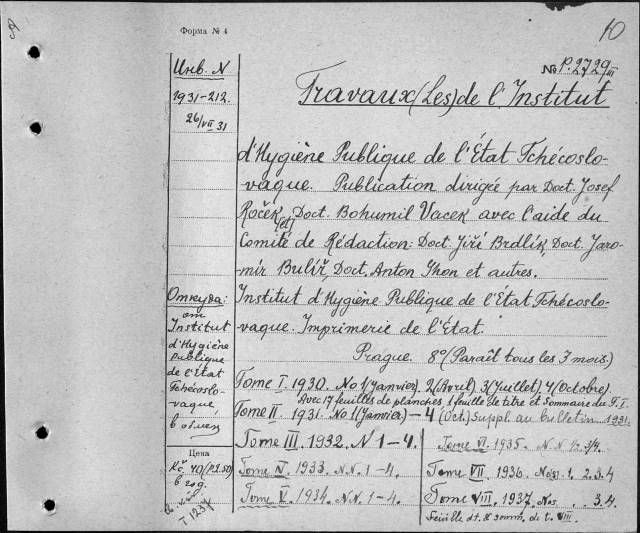 Форма № 4
10
Инв. N
1931-212.
26/VII 31
No P.2729 III
Travaux (Les) de l'Institut
d'Hygiène Publique de l'État Tchécoslo-
vaque. Publication dirigée par Doct. Josef
Roček, [et] Doct. Bohumil Vacek avec l'aide du
Comité de Rédaction: Doct. Jiří Brdlík, Doct. Jaro-
mír Bulíř, Doct. Anton Ghon et autres.
Institut d'Hygiène Publique de l'État Tchécoslo-
vaque. Imprimerie de l'État.
Prague. 8° (Paraît tous les 3 mois.)
Откуда:
от
Institut
d'Hygiène
Publique
de l'État
Tchécoslo-
vaque,
в обмен
Цена
Kč. 40 (P.2.50)
в год.
I 1237
Tome I. 1930. No 1 (Janvier), 2 (Avril) 3 (Juillet) 4 (Octobre).
Avec 17 feuilles de planches, 1 feuille de titre et Sommaire du T. I.
Tome II. 1931. No 1 (Janvier) – 4 (Oct.) Suppl. au bulletin 1931.
Tome III. 1932. N 1–4.
Tome IV. 1933. N.N. 1–4.
Tome V. 1934. N.N. 1–4.
Tome VI. 1935. N.N. 1/2. 3/4.
Tome VII. 1936. 1. 2. 3. 4
Tome VIII. 1937. Nos 3. 4.
Feuille dt. & somm. de t. VIII.